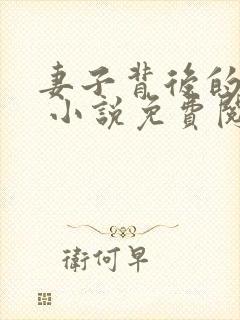 妻子背後的
小說免費閱
衛何早